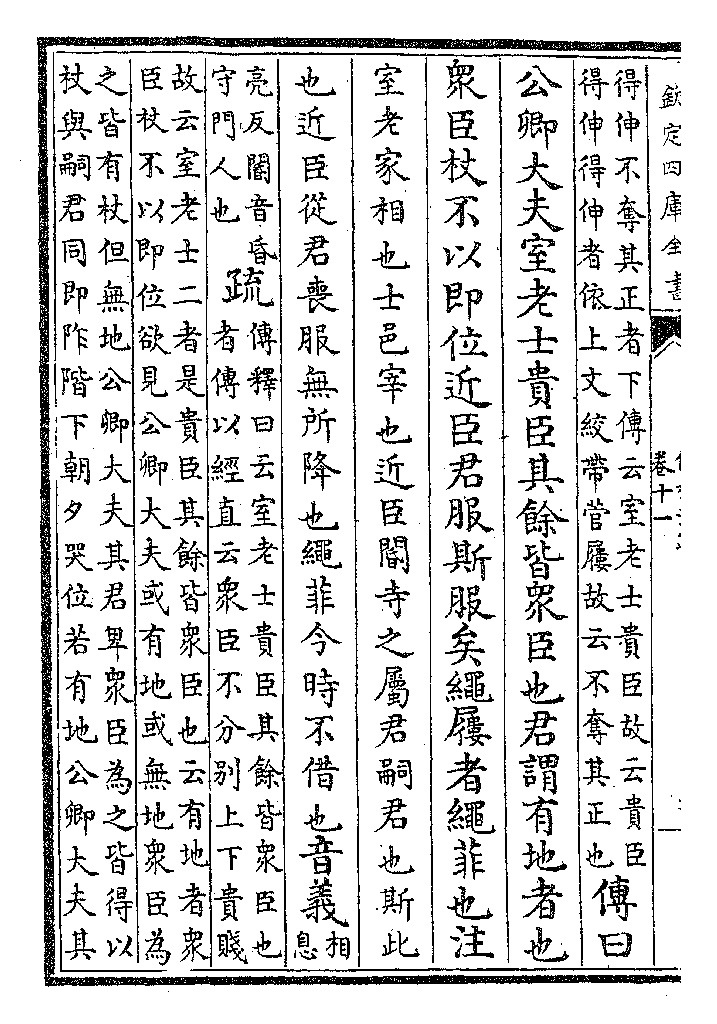 欽定四庫全書
卷十一
得伸不奪其正者下傳云室老士貴臣故云貴臣
得伸得伸者依上文絞帶菅屨故云不奪其正也
傳曰
公卿大夫室老士貴臣其餘皆衆臣也君謂有地者也
衆臣杖不以即位近臣君服斯服矣繩屨者繩菲也注
室老家相也士邑宰也近臣閽寺之屬君嗣君也斯此
也近臣從君喪服無所降也繩菲今時不借也音義
相息
亮反閽音昏
守門人也
疏
傳釋曰云室老士貴臣其餘皆衆臣也
者傳以經直云衆臣不分别上下貴賤
故云室老士二者是貴臣其餘皆衆臣也云有地者衆
臣杖不以即位欲見公卿大夫或有地或無地衆臣為
之皆有杖但無地公卿大夫其君卑衆臣為之皆得以
杖與嗣君同即阼階下朝夕哭位若有地公卿大夫其